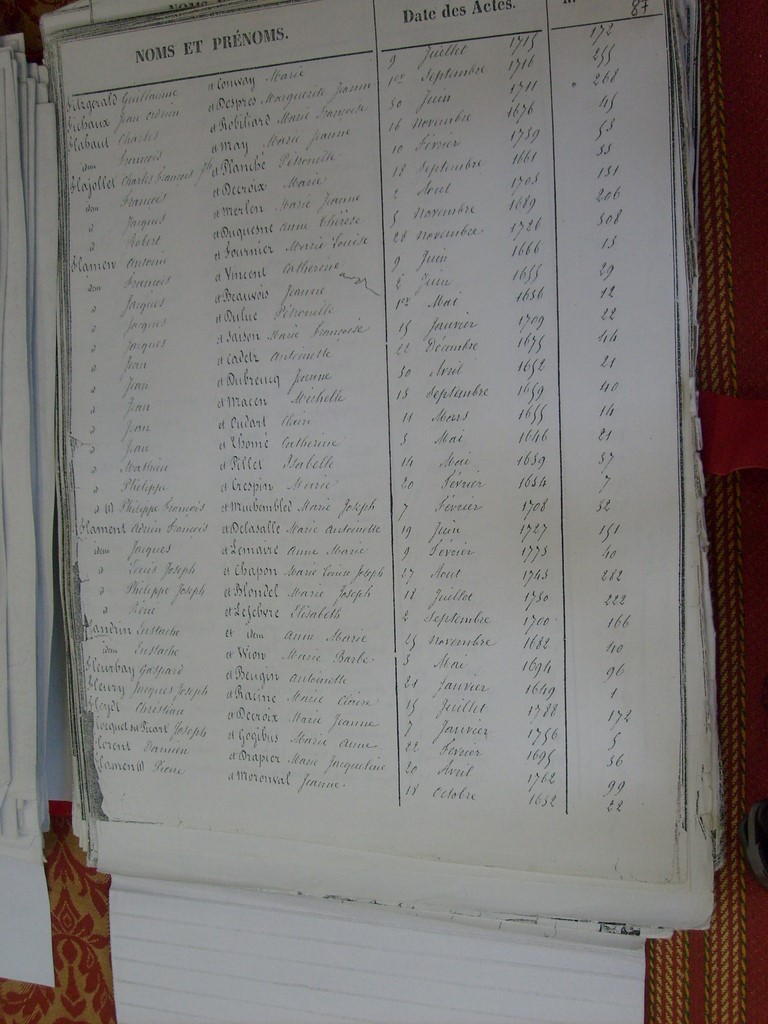 NOMS ET PRÉNOMS. Date des Actes. 87
Fitzgerald Guillaume et Conway Marie 9 Juillet 1715 172
Fichaux Jean Adrien et Despres Marguerite Jeanne 1er Septembre 1716 255
Flahaut Charles et Robiliard Marie Françoise 30 Juin 1711 268
idem François et May Marie Jeanne 16 Novembre 1676 45
Flajollet Charles François et Planche Pétronille 10 Février 1759 53
idem François et Decroix Marie 18 Septembre 1661 35
" Jacques et Merlen Marie Jeanne 2 Aout 1703 151
" Robert et Duquesne Anne Thérèse 5 Novembre 1689 206
Flamen Antoine et Fournier Marie Louise 28 Novembre 1726 308
idem François et Vincent Catherine 9 Juin 1666 15
" Jacques et Beauvois Jeanne 2 Juin 1655 29
" Jacques et Duluc Pétronille 1er Mai 1656 12
" Jacques et Saison Marie Françoise 15 Janvier 1709 22
" Jean et Cadetz Antoinette 22 Décembre 1675 44
" Jean et Dubreucq Jeanne 30 Avril 1652 21
" Jean et Macen Michelle 13 Septembre 1659 40
" Jean et Oudart Claire 11 Mars 1655 14
" Jean et Thome Catherine 3 Mai 1646 21
" Mathieu et Pillet Isabelle 14 Mai 1639 37
" Philippe et Crespin Marie 20 Février 1654 7
" (1) Philippe François et Muchembled Marie Joseph 7 Février 1708 32
Flament Adrien François et Delasalle Marie Antoinette 19 Juin 1727 151
idem Jacques et Lemaire Anne Marie 9 Février 1773 40
" Louis Joseph et Chapon Marie Louise Joseph 27 Aout 1743 282
" Philippe Joseph et Blondel Marie Joseph 18 Juillet 1750 222
" Réné et Lefebvre Elisabeth 2 Septembre 1700 166
Flandrin Eustache et idem Anne Marie 25 Novembre 1682 40
idem Eustache et Wion Marie Barbe 3 Mai 1694 96
Fleurbay Gaspard et Beugin Antoinette 21 Janvier 1649 1
Fleury Jacques Joseph et Racine Marie Claire 15 Juillet 1788 172
Floyd Christian et Decroix Marie Jeanne 7 Janvier 1756 5
Picart Joseph et Gogibus Marie Anne 22 Février 1695 36
Florent Damien et Drapier Marie Jacqueline 20 Avril 1762 99
Flamen (1) Pierre et Moronval Jeanne 18 Octobre 1652 22